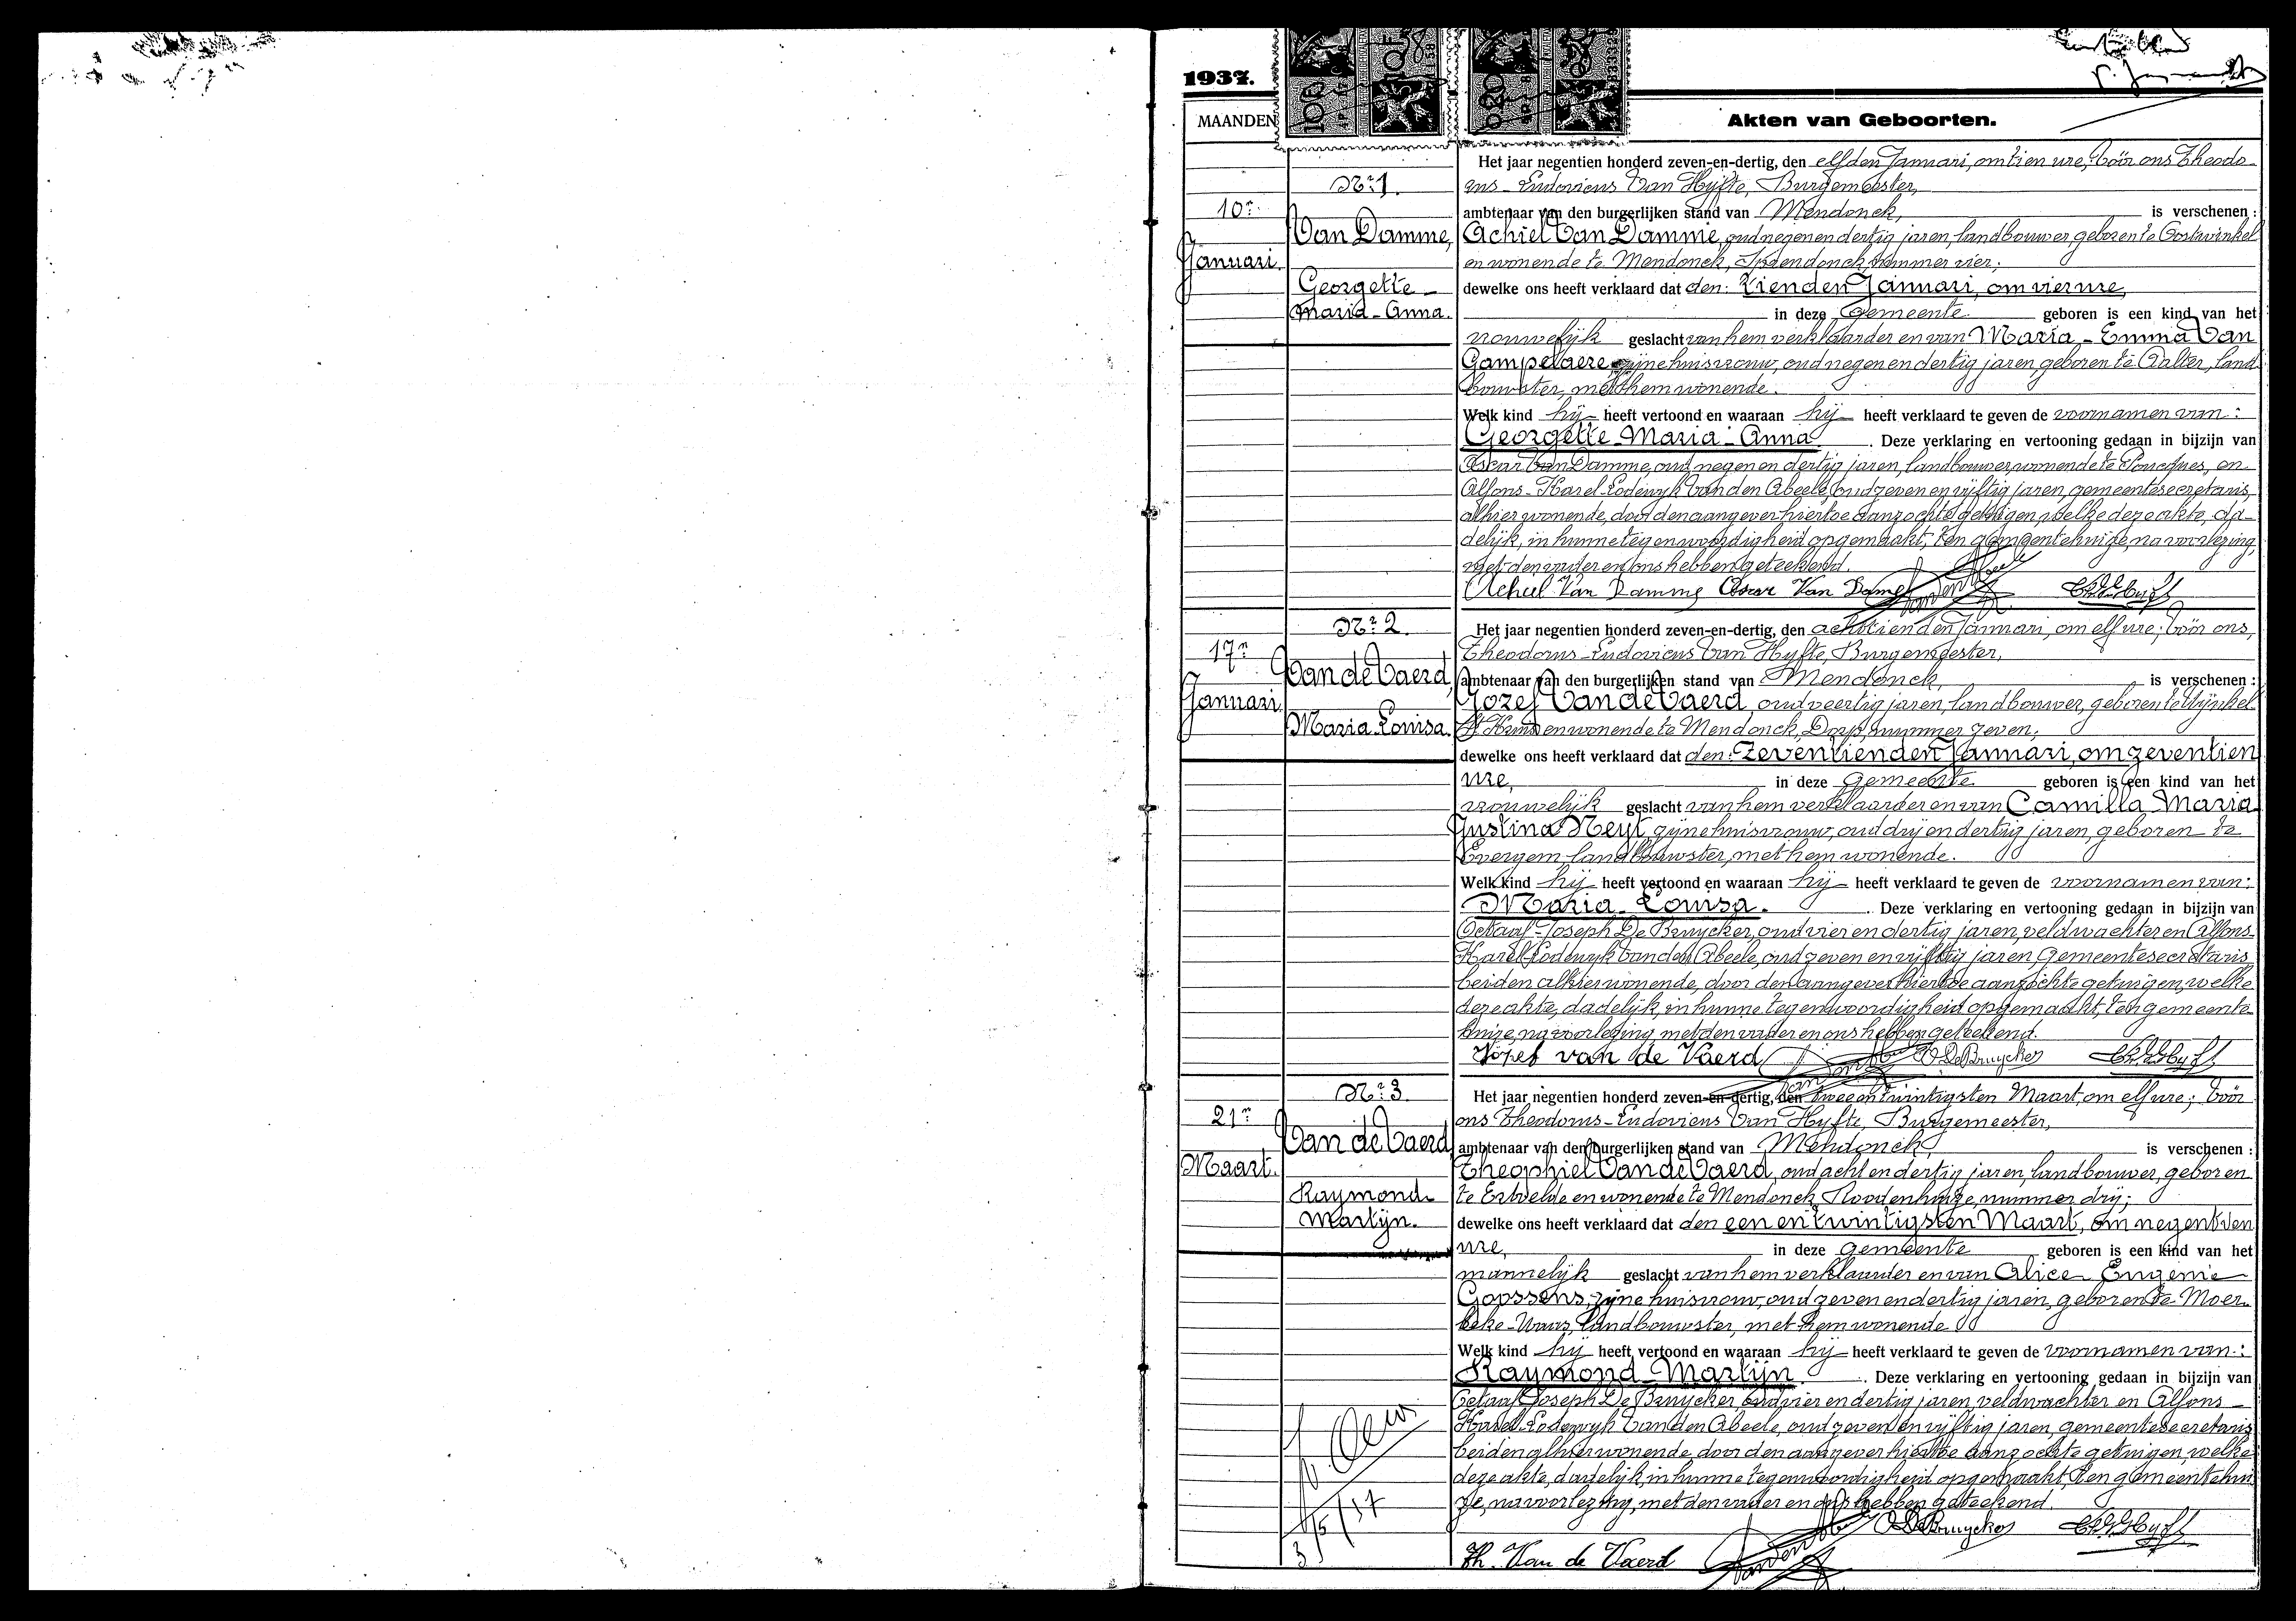 1937.
MAANDEN
Akten van Geboorten.
Nr. 1.
10n
Januari.
Van Damme,
Georgette -
Maria - Anna.
Het jaar negentien honderd zeven-en-dertig, den elfden Januari, om tien ure, vóór ons Theodo-
rus - Ludovicus Van Hyfte, Burgemeester,
ambtenaar van den burgerlijken stand van Mendonck, is verschenen :
Achiel Van Damme, oud negen en dertig jaren, landbouwer, geboren te Oostwinkel
en wonende te Mendonck, Spaendonck, nummer vier;
dewelke ons heeft verklaard dat den: tienden Januari, om vier ure,
in deze Gemeente geboren is een kind van het
vrouwelijk geslacht van hem verklaarder en van Maria - Emma Van
Gampelaere, zijne huisvrouw, oud negen en dertig jaren, geboren te Aalter, land-
bouwster, met hem wonende.
Welk kind hij heeft vertoond en waaraan hij heeft verklaard te geven de voornamen van :
Georgette - Maria - Anna. Deze verklaring en vertooning gedaan in bijzijn van
Oscar Van Damme, oud negen en dertig jaren, landbouwer, wonende te Poucques, en
Alfons - Karel - Lodewyk Van den Abeele, oud zeven en vijftig jaren, gemeentesecretaris,
alhier wonende, door den aangever hiertoe aanzochte getuigen, welke deze akte, da-
delijk, in hunne tegenwoordigheid opgemaakt, ten gemeentehuize, na voorlezing,
met den vader en ons hebben geteekend.
Achiel Van Damme Oscar Van Damme
Nr. 2.
17n
Januari
Van de Vaerd,
Maria Louisa.
Het jaar negentien honderd zeven-en-dertig, den achttienden Januari, om elf ure; vóór ons,
Theodorus - Ludovicus Van Hyfte, Burgemeester,
ambtenaar van den burgerlijken stand van Mendonck, is verschenen :
Jozef Van de Vaerd, oud veertig jaren, landbouwer, geboren te Wijnkel
St Kruis en wonende te Mendonck, Dorp, nummer zeven;
dewelke ons heeft verklaard dat den: zeventienden Januari, om zeventien
ure, in deze Gemeente geboren is een kind van het
vrouwelijk geslacht van hem verklaarder en van Camilla Maria
Justina Neyt, zijne huisvrouw, oud drij en dertig jaren, geboren te
Evergem, landbouwster, met hem wonende.
Welk kind hij heeft vertoond en waaraan hij heeft verklaard te geven de voornamen van :
Maria - Louisa. Deze verklaring en vertooning gedaan in bijzijn van
Octaaf - Joseph De Bruycker, oud vier en dertig jaren, veldwachter en Alfons-
Karel Lodewyk Van den Abeele, oud zeven en vijftig jaren Gemeentesecretaris
beiden alhier wonende, door den aangever hiertoe aanzochte getuigen, welke
deze akte, dadelijk, in hunne tegenwoordigheid opgemaakt, ten gemeente-
huize, na voorlezing met den vader en ons hebben geteekend.
Jozef van de Vaerd O. De Bruycker
Nr. 3.
21n
Maart.
Van de Vaerd,
Raymond
Martijn.
Het jaar negentien honderd zeven-en-dertig, den twee en twintigsten Maart, om elf ure; vóór
ons Theodorus - Ludovicus Van Hyfte, Burgemeester,
ambtenaar van den burgerlijken stand van Mendonck, is verschenen :
Theophiel Van de Vaerd, oud acht en dertig jaren, landbouwer, geboren
te Ertvelde en wonende te Mendonck, Roodenhuize, nummer drij;
dewelke ons heeft verklaard dat den een en twintigsten Maart, om negentien
ure, in deze gemeente geboren is een kind van het
mannelijk geslacht van hem verklaarder en van Alice - Eugenie
Goossens, zijne huisvrouw, oud zeven en dertig jaren, geboren te Moer-
beke - Waas, landbouwster, met hem wonende
Welk kind hij heeft vertoond en waaraan hij heeft verklaard te geven de voornamen van :
Raymond Martijn. Deze verklaring en vertooning gedaan in bijzijn van
Octaaf Joseph De Bruycker, oud vier en dertig jaren veldwachter en Alfons-
Karel Lodewyk Van den Abeele, oud zeven en vijftig jaren, gemeentesecretaris
beiden alhier wonende, door den aangever hiertoe aanzochte getuigen, welke
deze akte, dadelijk, in hunne tegenwoordigheid opgemaakt, ten gemeentehui-
ze, na voorlezing, met den vader en ons hebben geteekend.
O. De Bruycker
Th. Van de Vaerd